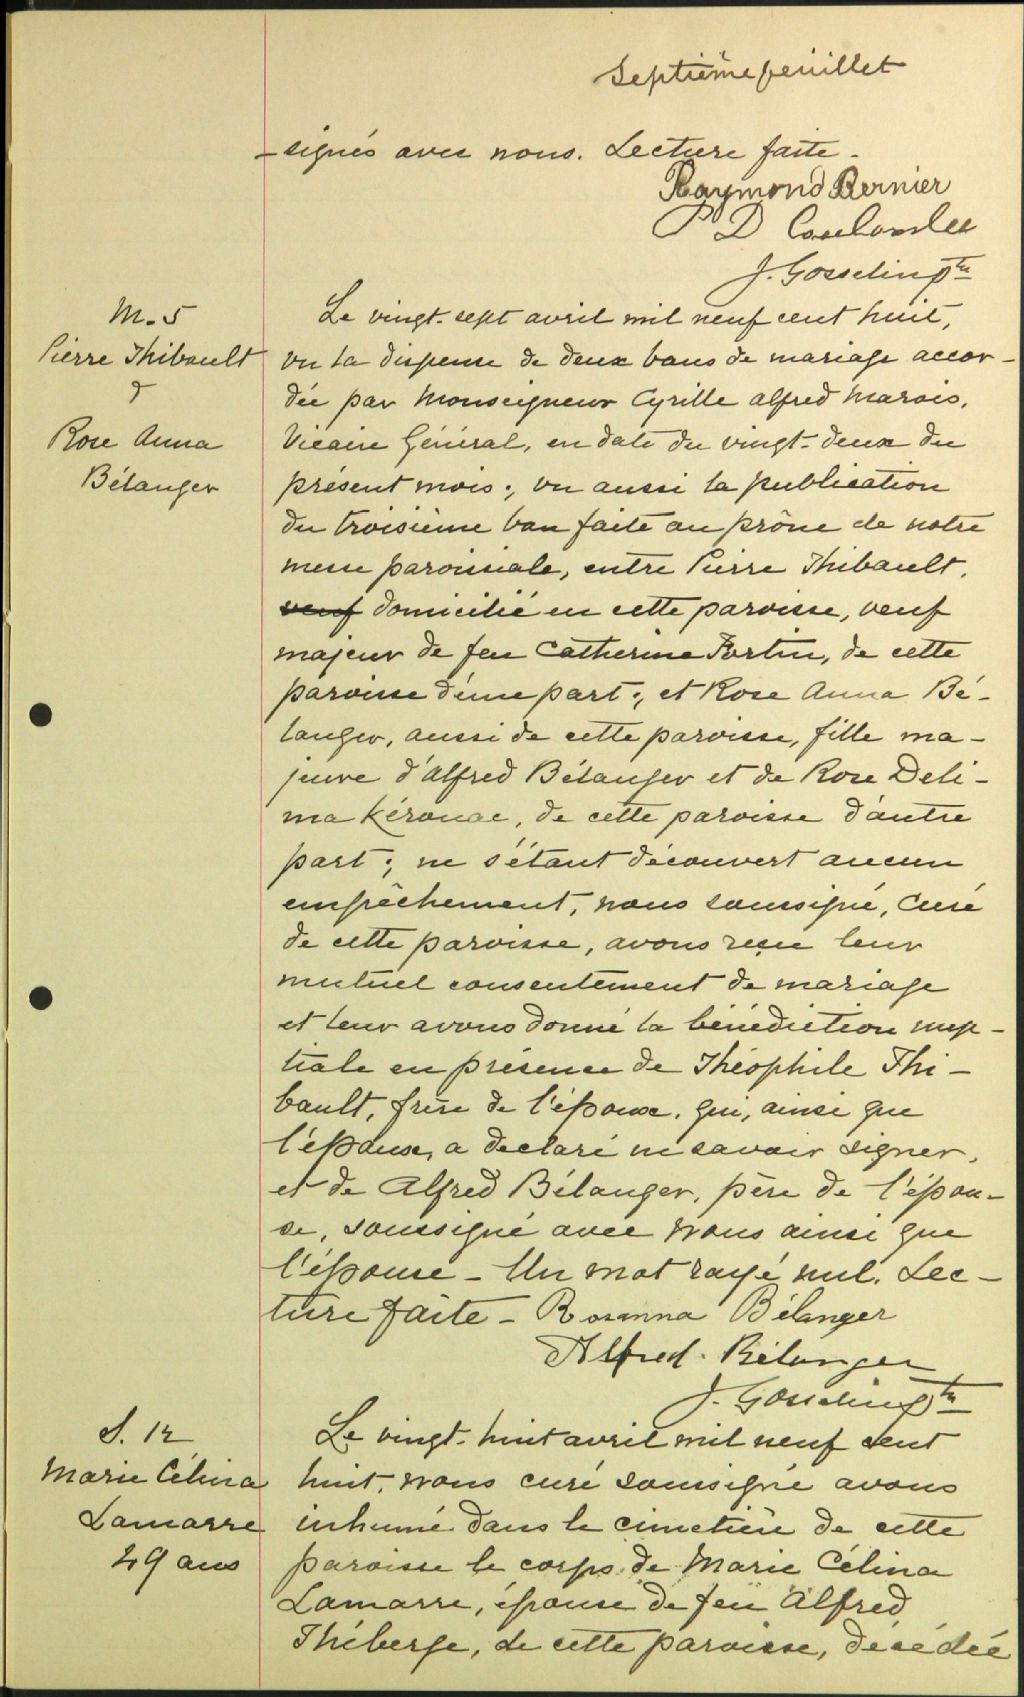 Septième feuillet
-signés avec nous. Lecture faite.
Raymond Bernier
P D Coulombe
J. Gosselin ptre
M. 5
Pierre Thibault
&
Rose Anna
Bélanger
Le vingt-sept avril mil neuf cent huit,
vu la dispense de deux bans de mariage accor-
dée par Monseigneur Cyrille Alfred Marois,
Vicaire Général, en date du vingt-deux du
présent mois; vu aussi la publication
du troisième ban faite au prône de notre
messe paroissiale, entre Pierre Thibault,
veuf domicilié en cette paroisse, veuf
majeur de feu Catherine Fortin, de cette
paroisse d'une part; et Rose Anna Bé-
langer, aussi de cette paroisse, fille ma-
jeure d'Alfred Bélanger et de Rose Deli-
ma Kérouac, de cette paroisse d'autre
part; ne s'étant découvert aucun
empêchement, nous soussigné, Curé
de cette paroisse, avons reçu leur
mutuel consentement de mariage
et leur avons donné la bénédiction nup-
tiale en présence de Théophile Thi-
bault, frère de l'époux, qui, ainsi que
l'époux, a declaré ne savoir signer,
et de Alfred Bélanger, père de l'épou-
se, soussigné avec nous ainsi que
l'épouse - Un mot rayé nul. Lec-
ture faite - Rosanna Bélanger
Alfred Bélanger
J. Gosselin ptre
S. 12
Marie Célina
Lamarre
49 ans
Le vingt-huit avril mil neuf cent
huit, nous curé soussigné avons
inhumé dans le cimetière de cette
paroisse le corps de Marie Célina
Lamarre, épouse de feu Alfred
Théberge, de cette paroisse, décédée